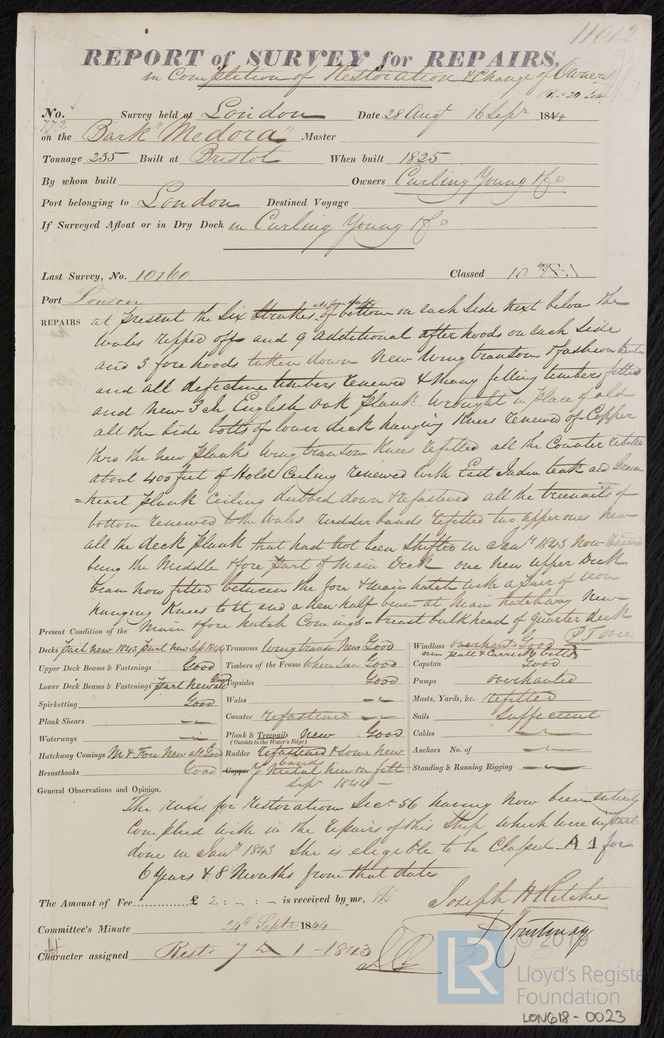 11012
REPORT of SURVEY for REPAIRS.
in Completion of Restoration & Change of Owners
No. Survey held at London Date 28 Augt 16 Sepr 1844
on the Bark "Medora" Master
Tonnage 235 Built at Bristol When built 1825
By whom built Owners Curling Young & Co
Port belonging to London Destined Voyage
If Surveyed Afloat or in Dry Dock in Curling Young & Co
Last Survey, No. 10160 Classed 10
Port London
REPAIRS at present the Six Strakes of bottom on each side next below the
Wales ripped off and 9 additional after hoods on each side
and 3 fore hoods taken down New Wing transom & fashion
and all defective timbers renewed & many filling timbers fitted
and New 3 In English Oak Plank wrought in place of old
all the side bolts of lower deck hanging Knees renewed of Copper
thro the new planks Wing transom Knees refitted all the Counter
about 400 feet of Hold Ceiling renewed with East India teak and Green
=heart plank Ceiling dubbed down & refastened all the treenails of
bottom renewed to the Wales rudder bands refitted two upper ones new
all the deck plank that had not been shifted in Jany 1843 Now
being the Middle & fore part of Main Deck one new upper Deck
beam now fitted between the fore & main hatch with a pair of iron
hanging Knees to it and a new half beam at Main hatchway New
Main & fore hatch Comings - breast bulkhead of quarter deck
Present Condition of the
Decks part new 1843, part new Sepr 1844 Transoms Wing transm New Good Windlass overhauled Good
new pall & Carrick bitts
Upper Deck Beams & Fastenings Good Timbers of the Frame Where seen Good Capstan Good
Lower Deck Beams & Fastenings part new all Good Topsides Good Pumps overhauled
Spirketting Good Wales Masts, Yards, &c. refitted
Plank Shears Counter refastened Sails Sufficient
Waterways Plank & Treenails New Good Cables
(Outside to the Water's Edge)
Hatchway Comings M & Fore New all Good Rudder refastened & some new bands Anchors No. of
Breasthooks Good Copper Y Metal New on felt Standing & Running Rigging
Sepr 1844
General Observations and Opinion,
The rules for restoration Sec. 56 having now been entirely
Complied with in the repairs of this Ship, which were in part
done in Jany 1843 She is eligible to be Classed A 1 for
6 Years & 8 Months from that date
The Amount of Fee............ £ 2 : - : - is received by me,
Joseph H Ritchie
Committee's Minute 24th Septr 1844
Courtenay
Character assigned Restd 7 A 1 - 1843
© 2019
LR
Lloyd's Register
Foundation
LON618-0023